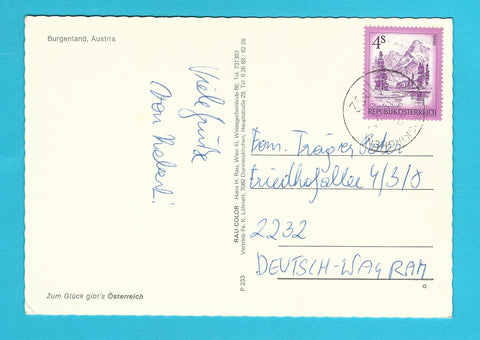 Burgenland, Austria
Viele Grüße
von Robert!
Zum Glück gibt's Österreich
P 233
RAU-COLOR Hans H. Rau, Wien
Vertrieb: Fa. K. Löhnert, 7082 Donnerskirchen, Hauptstraße 29, Tel. 0 26 83 / 82 28
4S
REPUBLIK ÖSTERREICH
Fam. Träger Peter
Friedhofallee 4/3/8
2232
DEUTSCH-WAGRAM